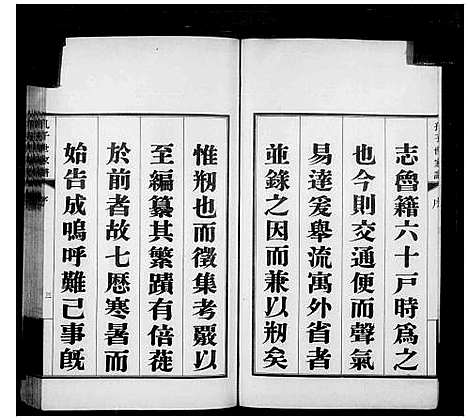 志魯籍六十戸時爲之
也今則交通便而聲氣
易達爰舉流寓外省者
並錄之因而兼以剏矣
惟剏也而徵集考覈以
至編纂其繁蹟有倍蓰
於前者故七歷寒暑而
始告成嗚呼難已事既
孔子世家譜
序
三